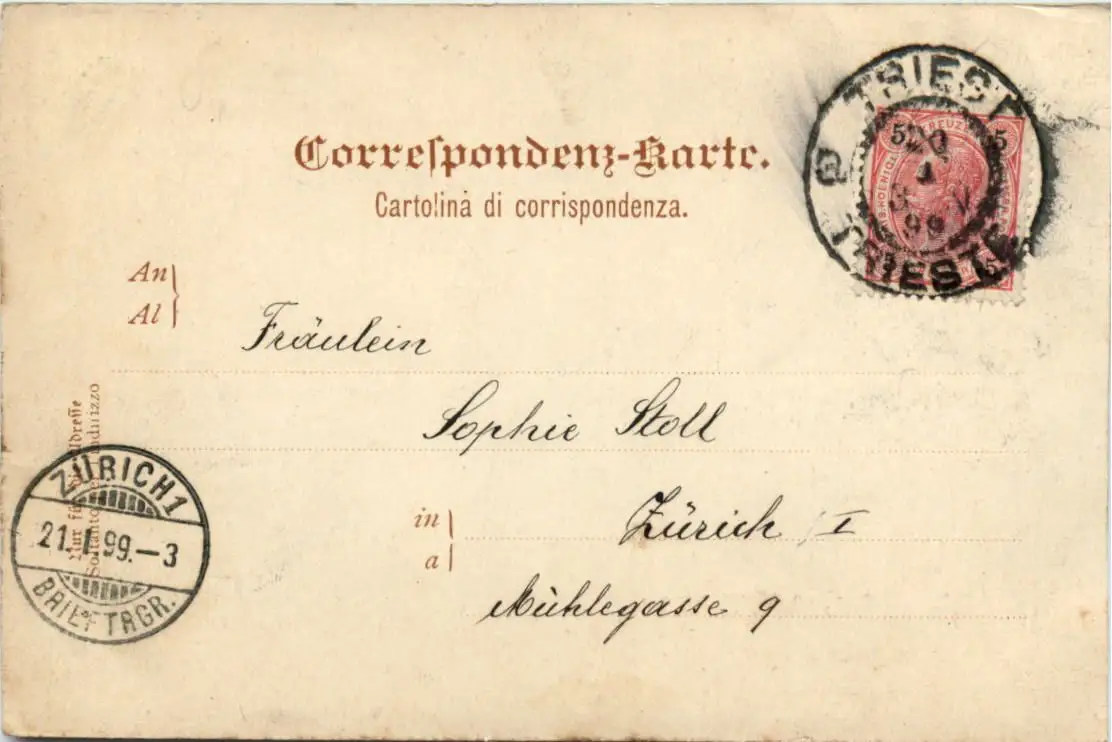 Correspondenz-Karte.
Cartolina di corrispondenza.
TRIEST
20
1
99
TRIESTE
5 KREUZER 5
5
An
Al
Fräulein
Sophie Stoll
in
a
Zürich / I
Mühlegasse 9
Nur für die Adresse
Soltanto per l'indirizzo
ZÜRICH 1
21. I. 99. – 3
BRIEFTRGR.